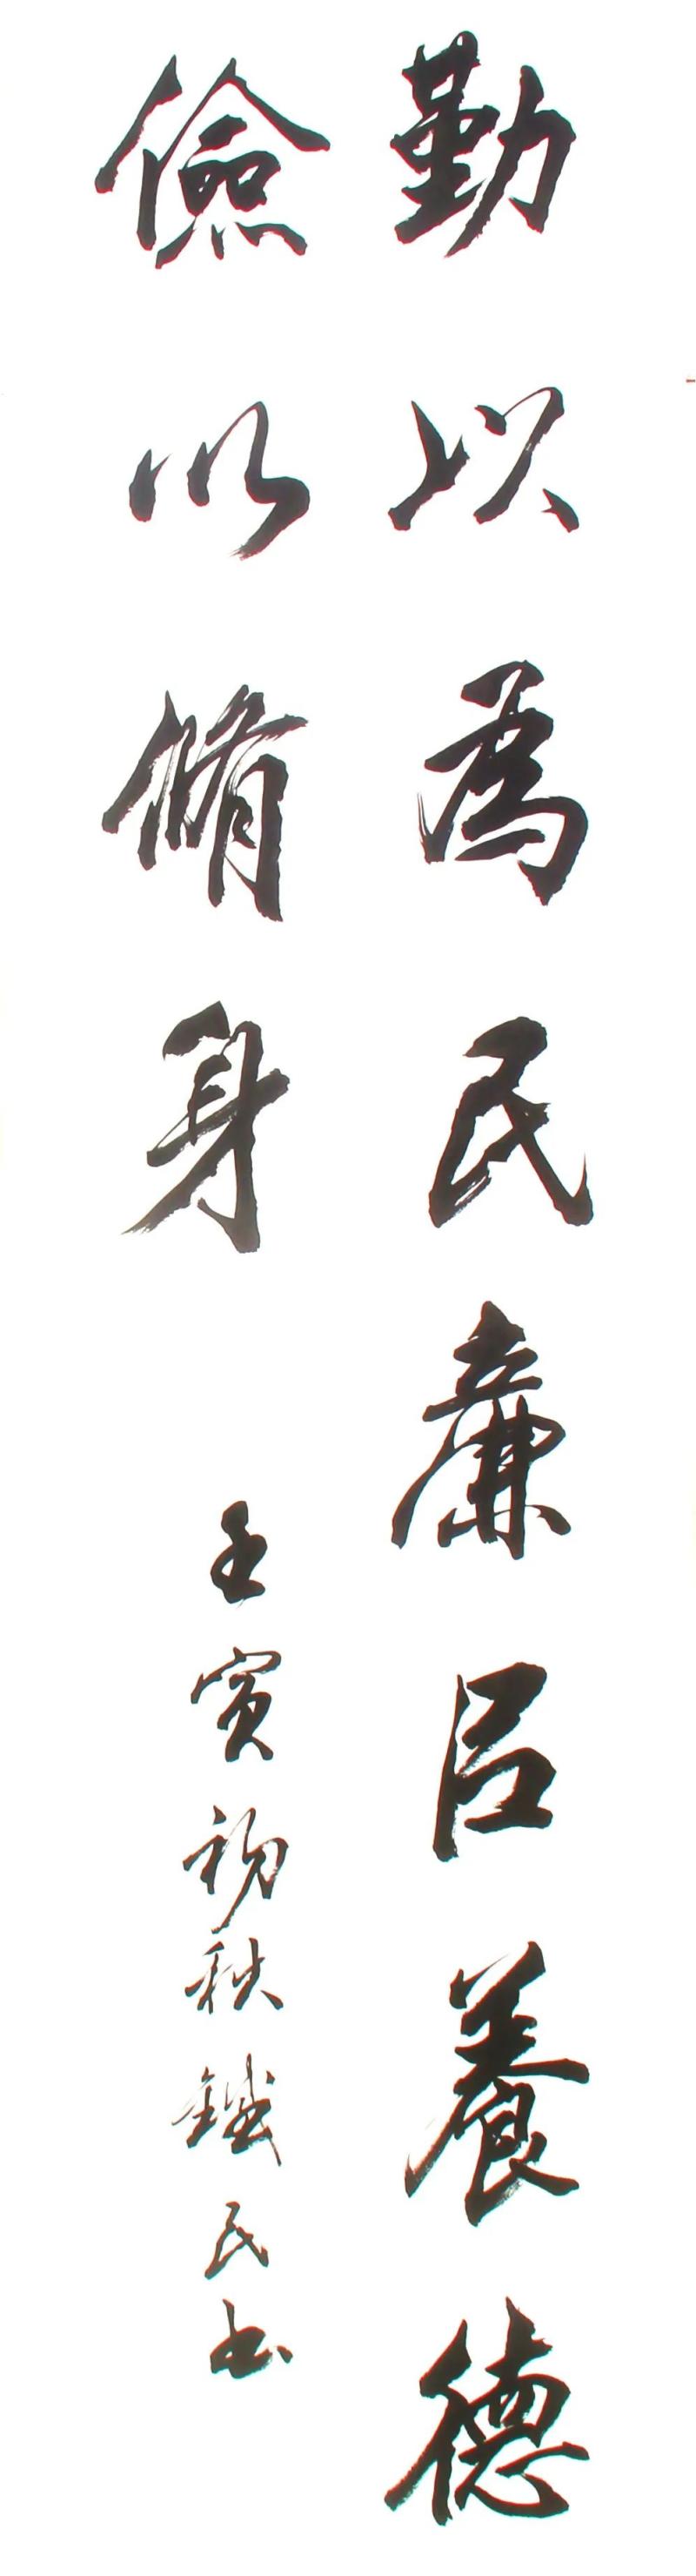 勤以為民廉㠯養德
儉以脩身
壬寅初秋鐵民书